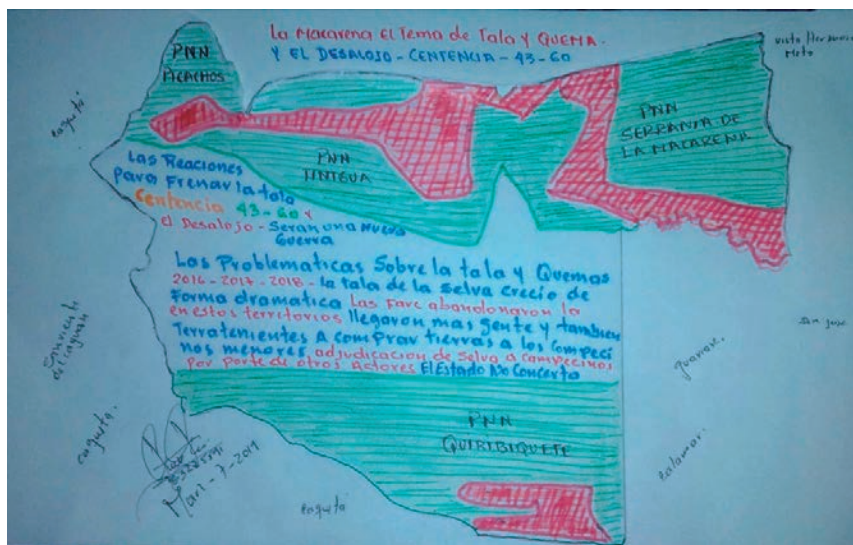 La Macarena El Tema de Tala y QUEMA.
Y EL DESALOJO - CENTENCIA - 43-60
PNN
PICACHOS
vista Hermosa
Meta
caquetá
PNN
SERRANIA DE
LA MACARENA
PNN
TINIGUA
Las Reaciones
para Frenar la tala
Centencia 43-60 y
el Desalojo - Seran una Nueva
Guerra
Las Problematicas Sobre la tala y Quemas
2016-2017-2018 - la tala de la selva crecio de
Forma dramatica Las Farc abandonaron la
en estos territorios llegaron mas gente y tambien
Terratenientes A comprar tierras a los campeci
nos menores, adjudicacion de selva a campecinos
por parte de otros Actores El Estado No Concerto
San Vicente
del caguan
san jose
guaviare.
caquetá.
PNN
QUIRIBIQUETE
calamar.
Marz-7-2019
caquetá